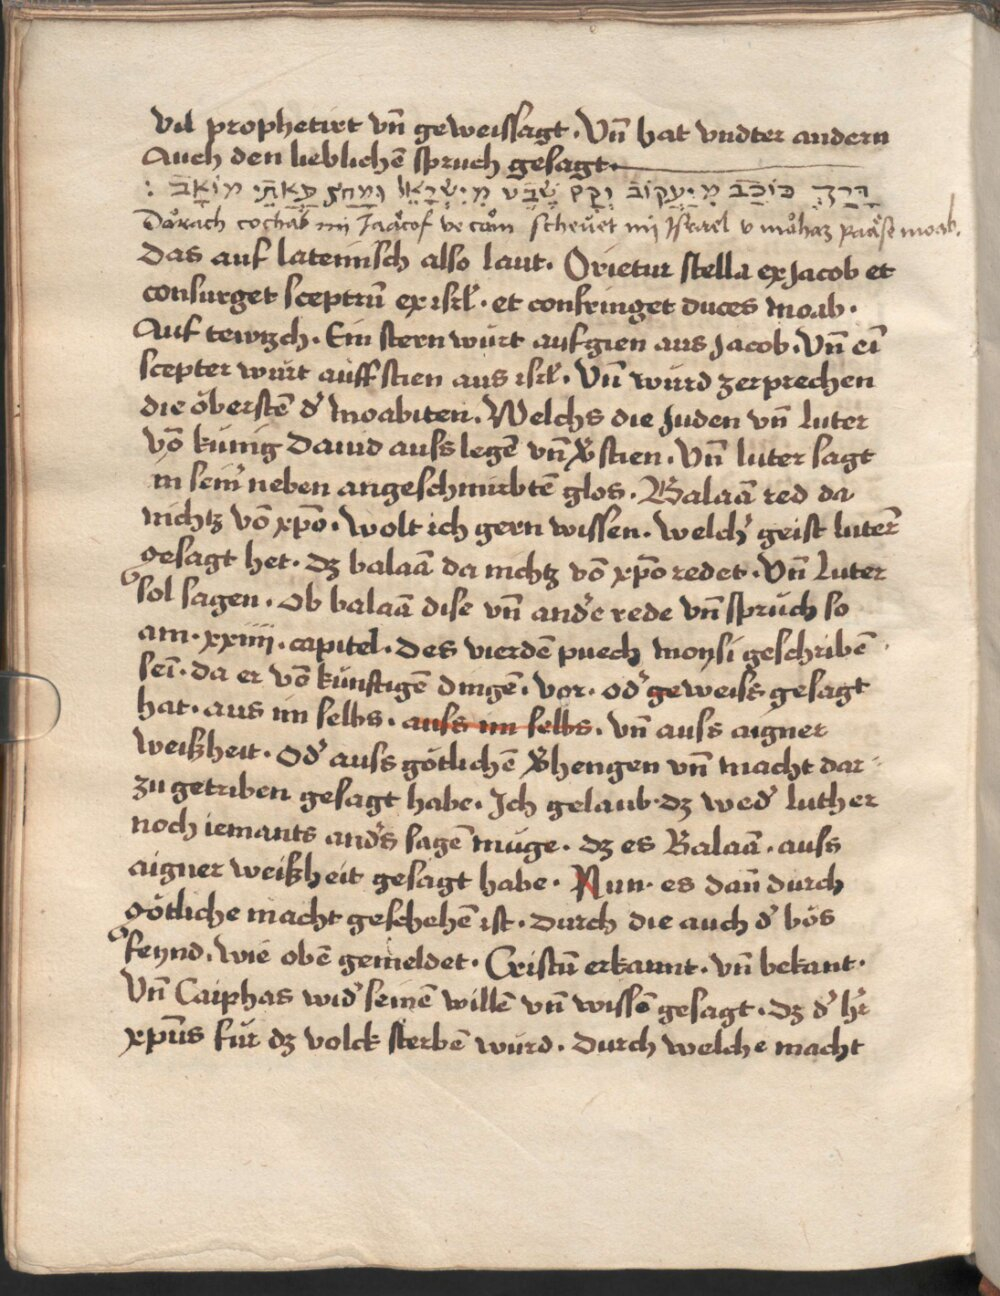 vil prophetirt vn̄ geweissagt. Vn̄ hat vndter andern
Auch den lieblichē spruch gesagt.
דָּרַךְ כּוֹכָב מִיַּעֲקוֹב וְקָם שֵׁבֶט מִיִשְׂרָאֵל וּמָחַץ פַּאֲתֵי מוֹאָב :
Dårach cochab mij Jaåcof ve cům scheuet mij Israel v måhaz paåste moab.
Das auf lateinisch also laut. Orietur stella ex Jacob et
consurget sceptrū ex isrl̄. et confringet duces moab.
Auf tewtzch. Ein stern würt aufgien aus Jacob. Vn̄ ei
scepter würt auffstien aus isrl̄. Vn̄ würd zerprechen
die öberstē d' moabiten. Welchs die Juden vn̄ luter
vō künig Dauid ausslegē vn̄ v'stien. Vn̄ luter sagt
in sein' neben angeschmirbtē glos. Balaā red da
nichtz vō xp̄o. wolt ich gern wissen. welch' geist luter
gesagt het. dz balaā da nichtz vō xp̄o redet. Vn̄ Luter
sol sagen. ob balaā dise vn̄ and'e rede vn̄ sprüch so
am. xxiiii. capitel. des vierdē puech moysi geschribē
sei. da er vō künftigē dingē. vor. od' geweiss gesagt
hat. aus im selbs. auss im selbs. vn̄ auss aigner
weißheit. Od' auss götlichē v'hengen vn̄ macht dar
zu getriben gesagt habe. Ich gelaub dz wed' luther
noch iemants and's sagē müge. dz es Balaā. auss
aigner weißheit gesagt habe. Nun. es dan̄ durch
götliche macht geschehē ist. durch die auch d' bös
feynd. wie obē gemeldet. Cristū erkannt. vn̄ bekant.
Vn̄ Caiphas wid' seinē willē vn̄ wissē gesagt. dz d' hr̄
xpūs für dz volck sterbē würd. durch welche macht